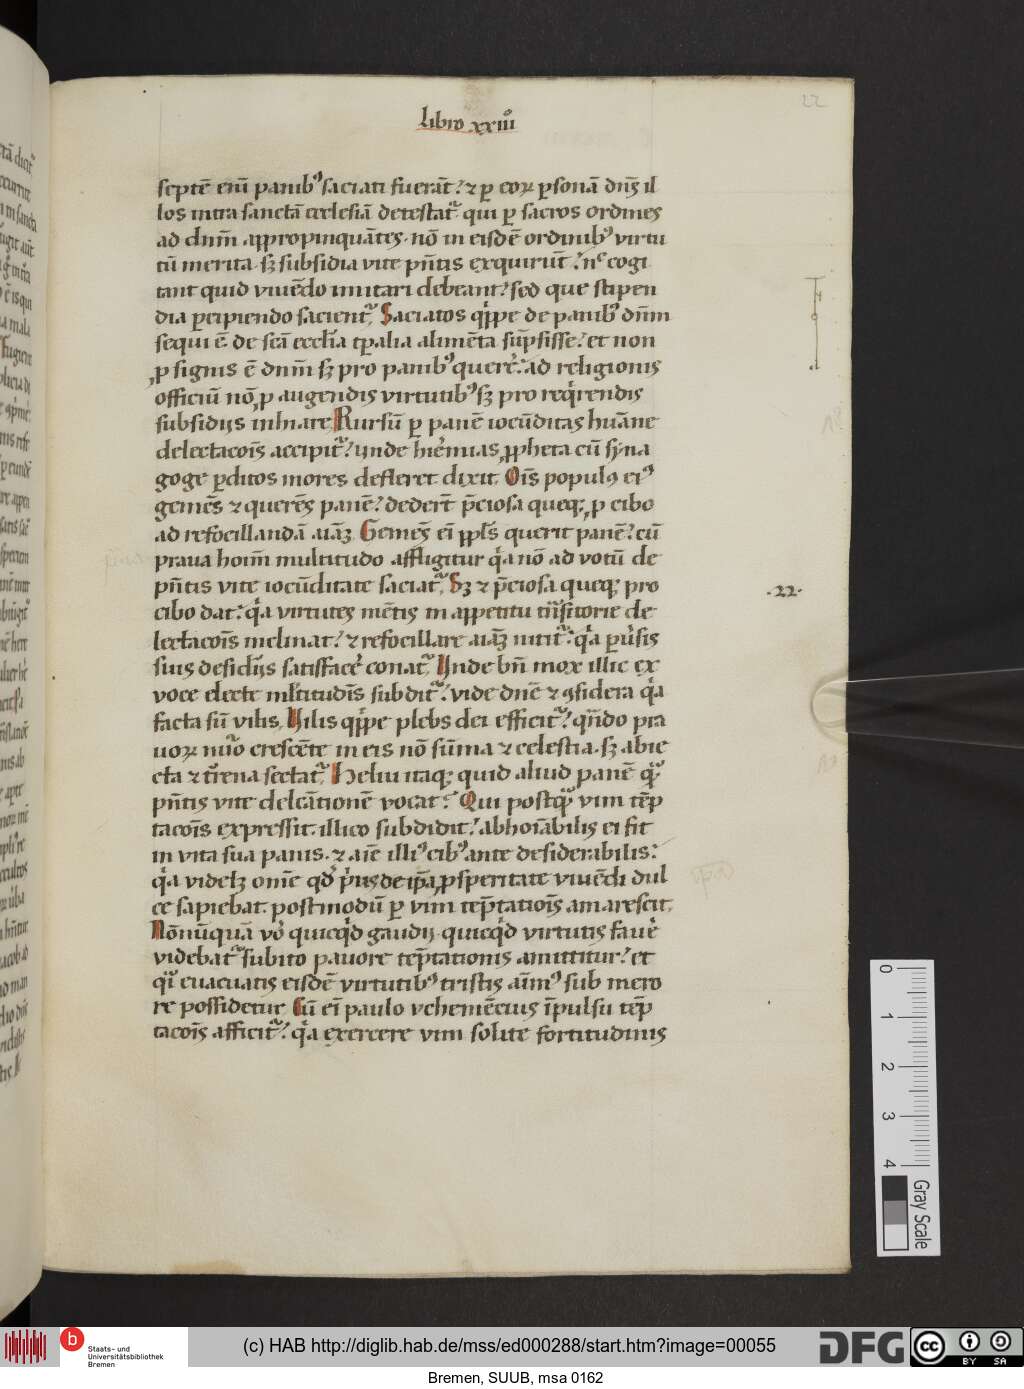 libro xxiiiº
22
septē eniꝫ panibꝰ saciati fuerāt? ⁊ ꝑ eoꝝ ꝑsonā dn̄s il
los intra sanctā ecclesiā detestat᷑. qui ꝑ sacros ordines
ad dnm̄ appropinquātes. nō in eisdē ordinibꝰ virtu
tū merita. sꝫ subsidia vite pn̄tis exquirūt? nͨ cogi
tant quid viuēdo imitari debeant? sed que stipen
dia percipiendo sacient᷑. Saciatos qͥppe de panibꝰ dn̄m
sequi ē. de scā ecclīa tꝑalia alimēta sūpsisse? et non
ꝓ signis ē dnm̄ sꝫ pro panibꝰ querē: ad religionis
officiū nō ꝓ augendis virtutibꝰ sꝫ pro reqͥrendis
subsidiis inhiare. Rursū ꝑ panē iocūditas huāne
delectacōis accipit᷑? unde hieͬmias ꝓpheta cū syna
goge ꝑditos mores defleret dixit. Oīs populꝰ eiꝰ
gemēs ⁊ querēs panē? dederūt p̄ciosa queqꝫ ꝓ cibo
ad refocillandā aīāꝫ. Gemēs eī ppl̄s querit panē? cū
praua hoīm multitudo affligitur qͥa nō ad votū de
pn̄tis vite iocūditate saciat᷑. Sꝫ ⁊ p̄ciosa queqꝫ pro
cibo dat: qͥa virtutes mētis in appetitu trāsitorie de
lectacōis inclinat? ⁊ refocillare aīāꝫ nitit᷑: qͥa ꝑuͥsis
suis desidiis satisfacē conat᷑. Unde bn̄ mox illic ex
voce electe ml̄titudīs subdit᷑? vide dn̄e ⁊ ꝯsidera qͥa
facta sū vilis. Vilis qͥppe plebs dei efficit᷑? qn̄do pra
uoꝝ nūo crescēte in eis nō sūma ⁊ celestia. sꝫ abie
cta ⁊ t̄rena sectat᷑. Heliu itaqꝫ quid aliud panē qͣꝫ
pn̄tis vite delc̄ationē vocat? Qui postqͣꝫ vim tēp
tacōis expressit. illico subdidit? abhoīabilis ei fit
in vita sua panis. ⁊ aīe illiꝰ cibꝰ ante desiderabilis:
qͥa videlꝫ om̄e qd̓ pͥus de ip̄a ꝓsperitate viuēdi dul
ce sapiebat. postmodū ꝑ vim tēptatiōis amarescit.
Nōnūquā vō quicqͥd gaudij. quicqͥd virtutis fauē
videbat᷑ subito pauore tēptationis amittitur? et
qͣꝫ euacuatis eisdē virtutibꝰ tristis aīmꝰ sub mero
re possidetur. Cū eī paulo vehemēcius īpulsu tēp
tacōis afficit᷑? qͥa exercere vim solite fortitudinis
.22.
0 1 2 3 4
Gray Scale
b Staats- und
Universitätsbibliothek
Bremen
(c) HAB http://diglib.hab.de/mss/ed000288/start.htm?image=00055
DFG
cc BY SA
Bremen, SUUB, msa 0162